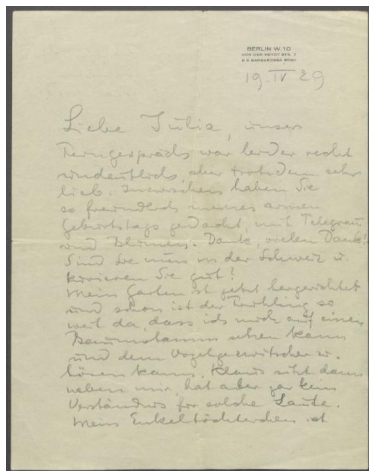 BERLIN W. 10
19. IV 29
Liebe Julia, unser
Ferngespräch war leider recht
undeutlich aber trotzdem sehr
lieb. Inzwischen haben Sie
so freundlich meines armen
Geburtstags gedacht, mit Telegram
und Blumen. Dank, vielen Dank!
Sind Sie nun in der Schweiz u.
kurieren Sie gut?
Mein Garten ist jetzt hergerichtet
und schon ist der Frühling so
weit da, dass ich mich auf einen
Baumstamm setzen kann
und dem Vogelgezwitscher zu-
hören kann. Klaus sitzt dann
neben mir, hat aber gar kein
Verständnis für solche Laute.
Mein Enkeltöchterchen ist